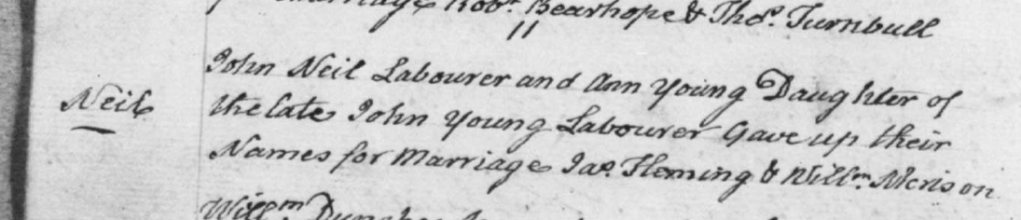 for Marriage Robt. Bearhope & Thos. Turnbull
"
John Neil Labourer and Ann Young Daughter of
Neil
the late John Young Labourer Gave up their
Names for Marriage Jas. Fleming & Willm.
Willm